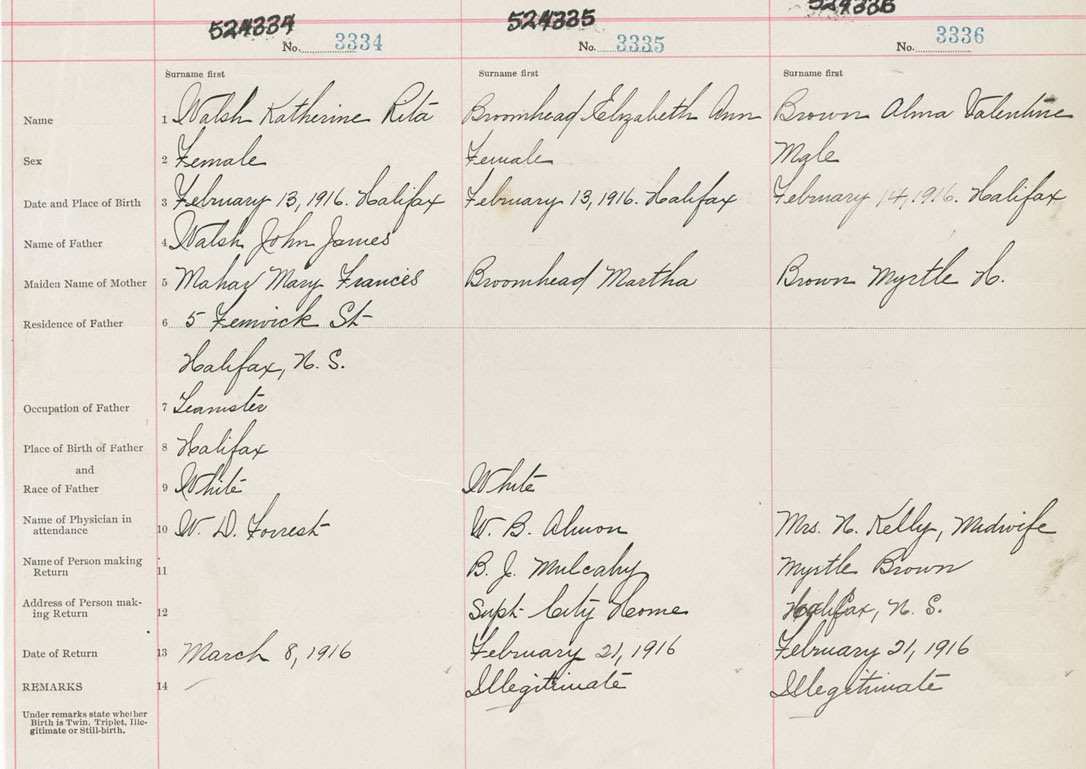 524334 524335 524336
No. 3334 No. 3335 No. 3336
Surname first Surname first Surname first
Name 1 Walsh Katherine Rita Broomhead Elizabeth Ann Brown Alma Valentine
Sex 2 Female Female Male
Date and Place of Birth 3 February 13, 1916. Halifax February 13, 1916. Halifax February 14, 1916. Halifax
Name of Father 4 Walsh John James
Maiden Name of Mother 5 Mahar Mary Frances Broomhead Martha Brown Myrtle H.
Residence of Father 6 5 Fenwick St
Halifax, N. S.
Occupation of Father 7 Teamster
Place of Birth of Father 8 Halifax
and
Race of Father 9 White White
Name of Physician in
attendance 10 W. D. Forrest W. B. Almon Mrs. N. Kelly, Midwife
Name of Person making
Return 11 B. J. Mulcahy Myrtle Brown
Address of Person mak-
ing Return 12 Supt City Home Halifax, N. S.
Date of Return 13 March 8, 1916 February 21, 1916 February 21, 1916
REMARKS 14 Illegitimate Illegitimate
Under remarks state whether
Birth is Twin, Triplet, Ille-
gitimate or Still-birth.